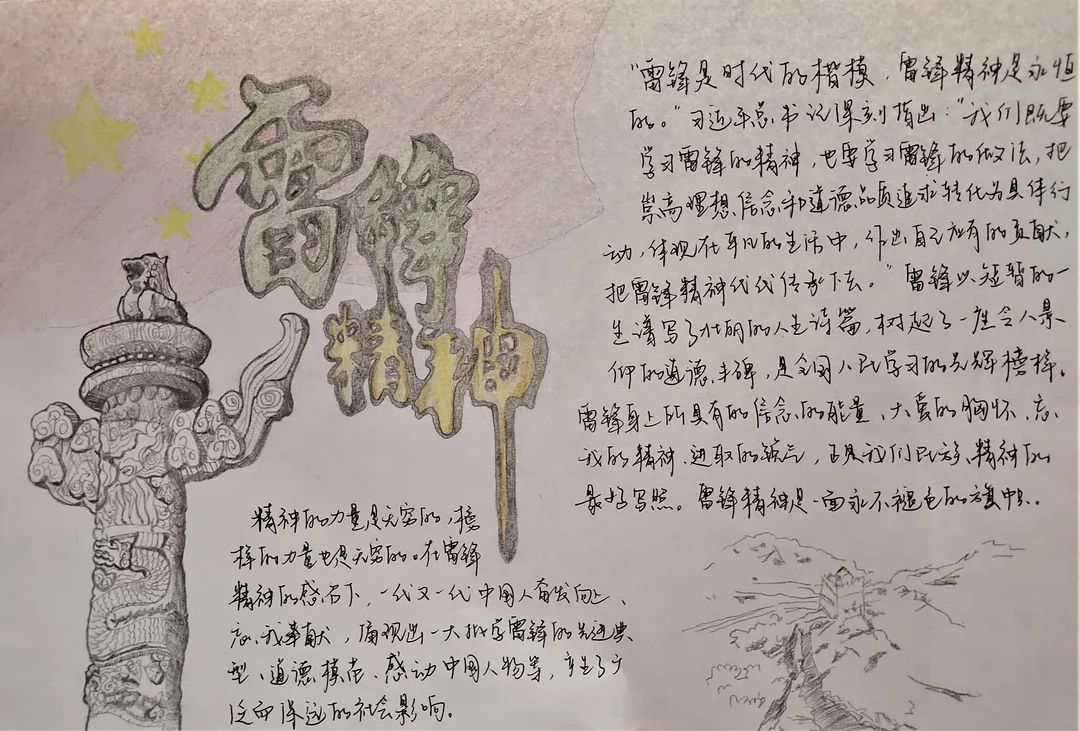 雷锋
精神
"雷锋是时代的楷模，雷锋精神是永恒
的。"习近平总书记深刻指出："我们既要
学习雷锋的精神，也要学习雷锋的做法，把
崇高理想信念和道德品质追求转化为具体行
动，体现在平凡的生活中，作出自己应有的贡献，
把雷锋精神代代传承下去。"雷锋以短暂的一
生谱写了壮丽的人生诗篇，树起了一座令人景
仰的道德丰碑，是全国人民学习的光辉榜样。
雷锋身上所具有的信念的能量、大爱的胸怀、忘
我的精神、进取的锐气，正是我们民族精神的
最好写照。雷锋精神是一面永不褪色的旗帜。
精神的力量是无穷的，榜
样的力量也是无穷的。在雷锋
精神的感召下，一代又一代中国人奋发向上、
忘我奉献，涌现出一大批学雷锋的先进典
型、道德模范、感动中国人物等，产生了广
泛而深远的社会影响。